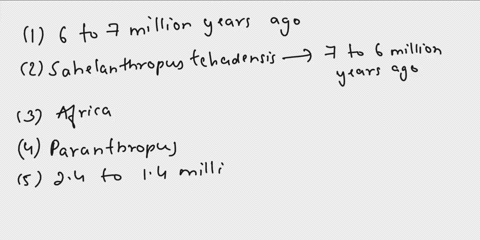 (1) 6 to 7 million years ago
(2) Sahelanthropus tchadensis → 7 to 6 million
years ago
(3) Africa
(4) Paranthropus
(5) 2.4 to 1.4 milli